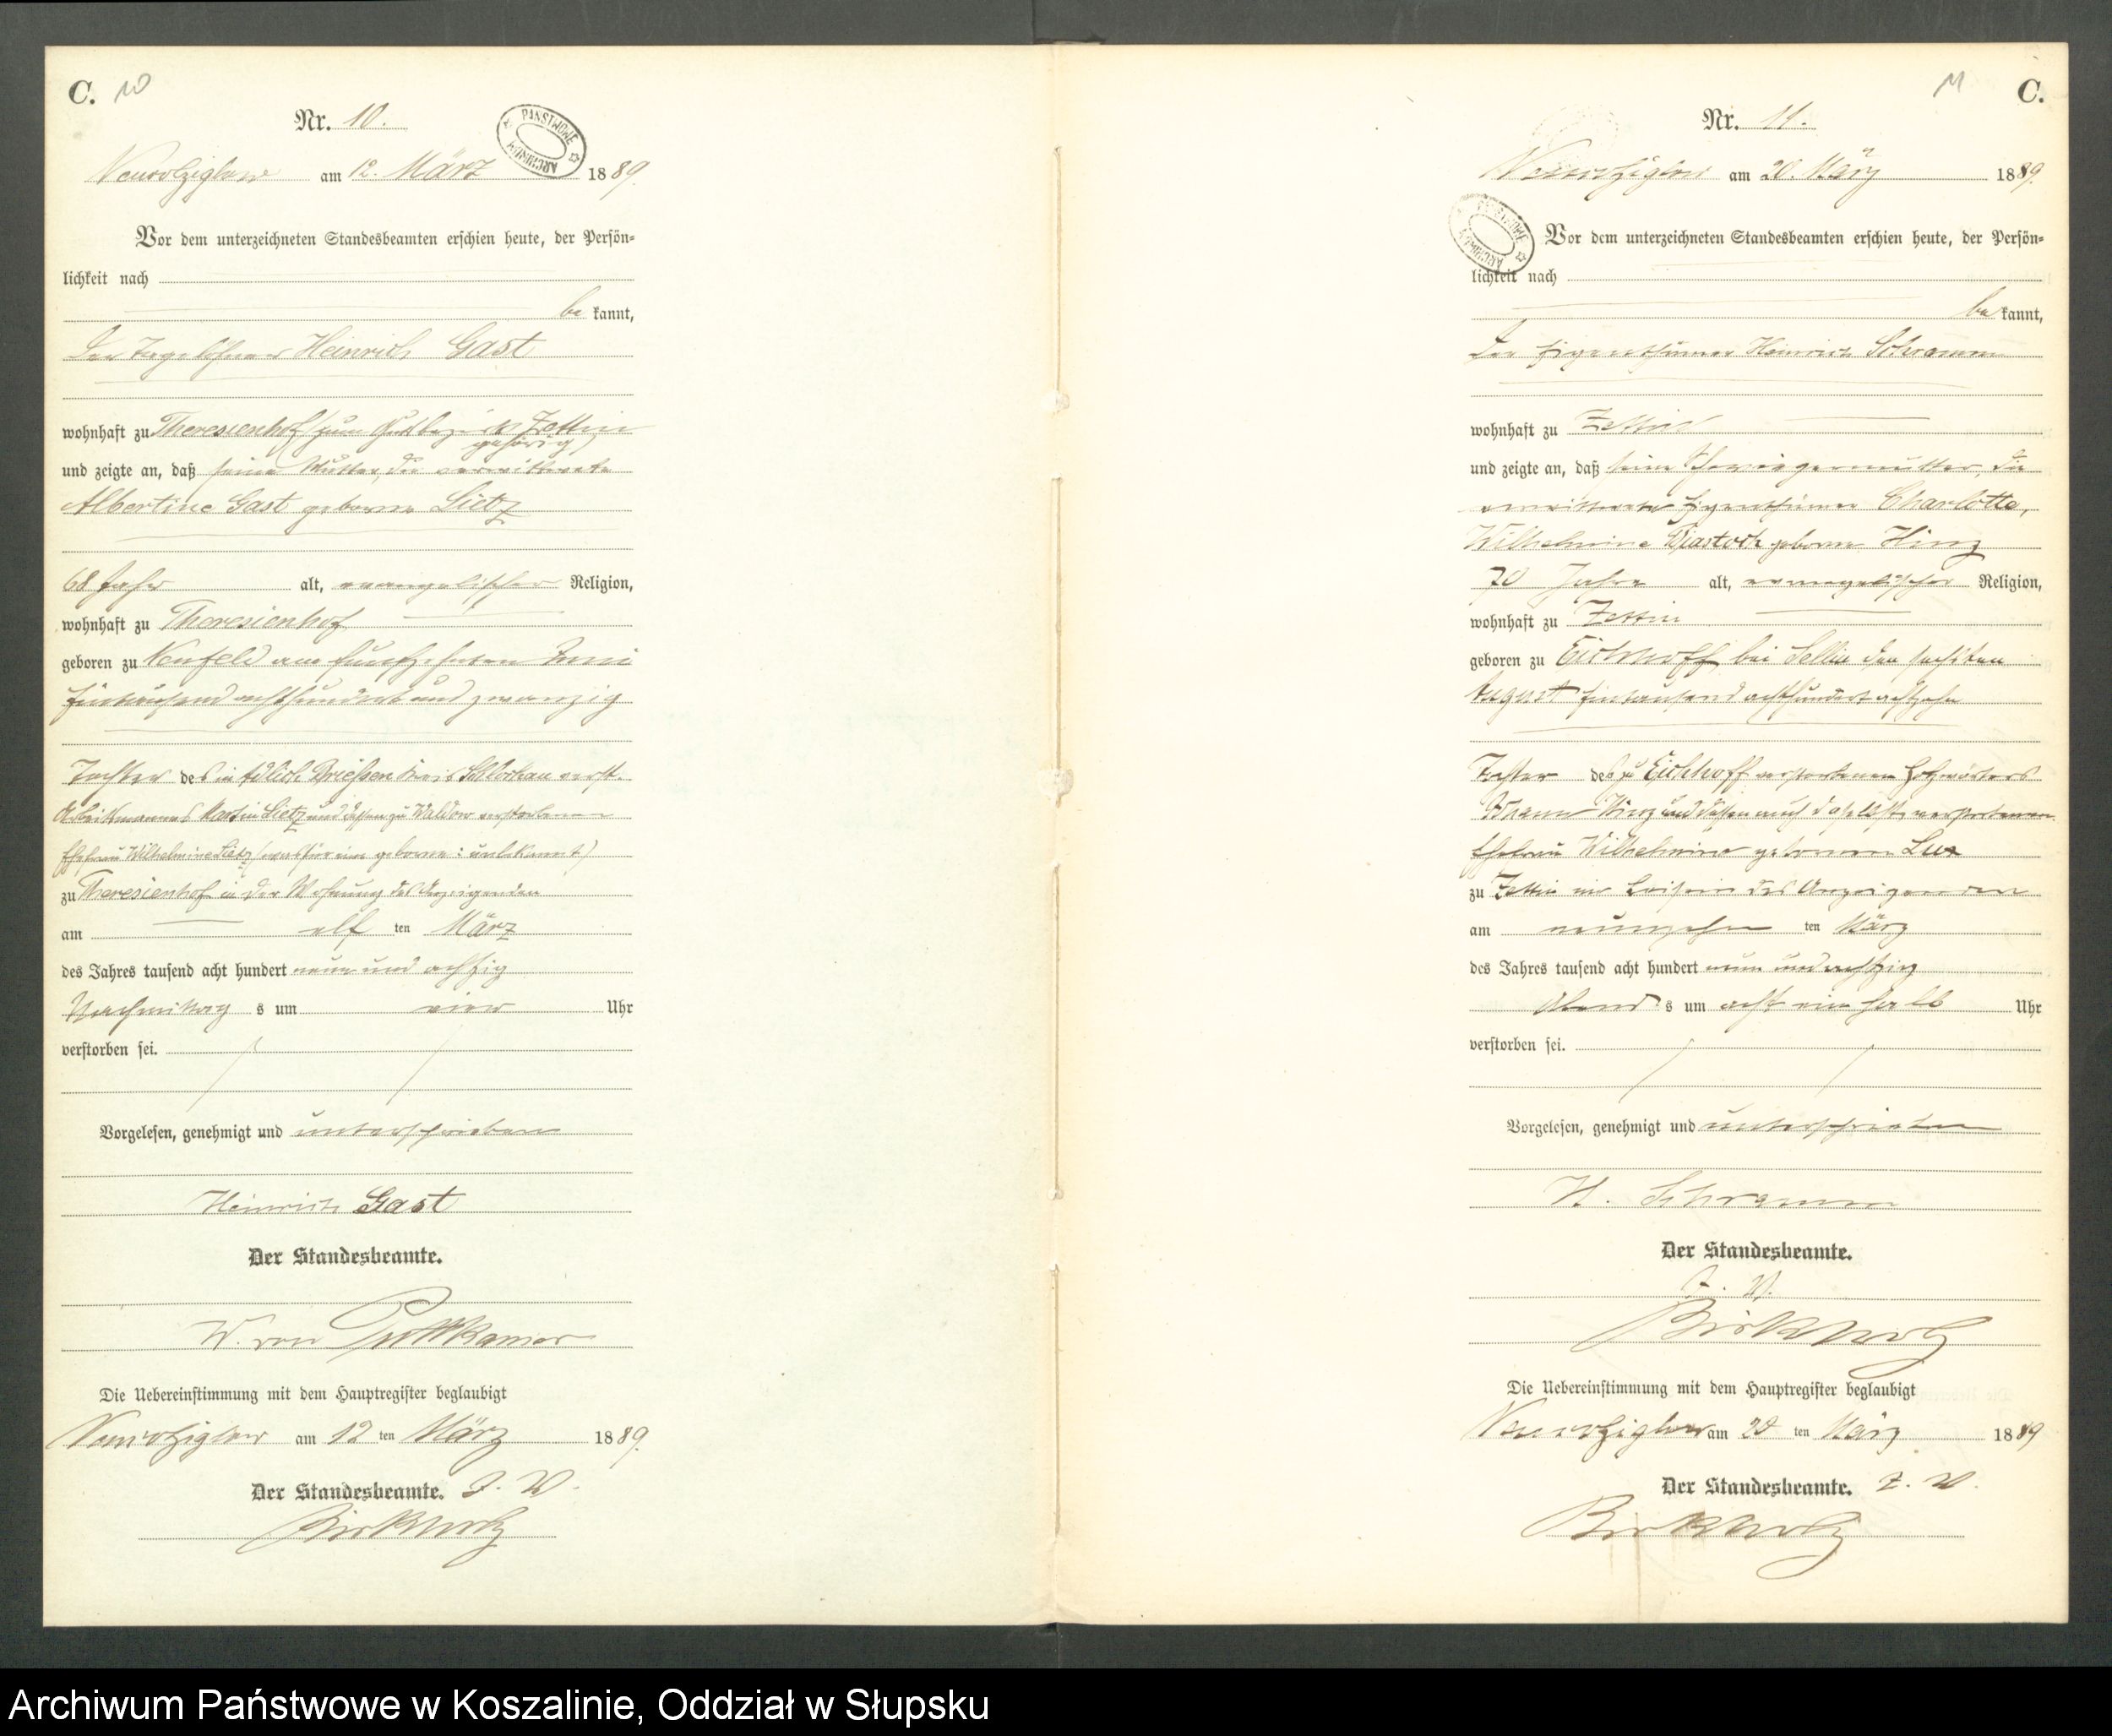 C. 10
Nr. 10.
PAŃSTWOWE ARCHIWUM
Neuwolziglow am 12. März 1889.
Vor dem unterzeichneten Standesbeamten erschien heute, der Persön-
lichkeit nach
be kannt,
der Tagelöhner Heinrich Gast
wohnhaft zu Theresienhof (zum Gutsbezirk Zettin
gehörig)
und zeigte an, daß seine Mutter, die verwittwete
Albertine Gast geborne Lietz
68 Jahr alt, evangelischer Religion,
wohnhaft zu Theresienhof
geboren zu Neufeld am fünfzehnten Juni
Eintausend achthundert und zwanzig
Tochter des in Adlich Briesen Kreis Schlochau verst.
Arbeitsmannes Martin Lietz und dessen zu Waldow verstorbenen
Ehefrau Wilhelmine Lietz (was für eine geborne: unbekannt)
zu Theresienhof in der Wohnung des Anzeigenden
am elf ten März
des Jahres tausend acht hundert neun und achtzig
Nachmittag s um vier Uhr
verstorben sei.
Vorgelesen, genehmigt und unterschrieben
Heinrich Gast
Der Standesbeamte.
W. von Puttkamer
Die Uebereinstimmung mit dem Hauptregister beglaubigt
Neuwolziglow am 12 ten März 1889.
Der Standesbeamte. I. V.
Birkholz
11 C.
Nr. 11.
PAŃSTWOWE ARCHIWUM
Neuwolziglow am 20. März 1889.
Vor dem unterzeichneten Standesbeamten erschien heute, der Persön-
lichkeit nach
be kannt,
der Eigenthümer Heinrich Schramm
wohnhaft zu Zettin
und zeigte an, daß seine Schwiegermutter, die
verwittwete Eigenthümer Charlotte,
Wilhelmine geborne Hinz
70 Jahre alt, evangelischer Religion,
wohnhaft zu Zettin
geboren zu Eichhoff bei Sellin den sechsten
August Eintausend achthundert achtzehn
Tochter des zu Eichhoff verstorbenen Holzwärters
Hinz und dessen auch daselbst verstorbenen
Ehefrau Wilhelmine gebornen Lux
zu Zettin im Beisein des Anzeigenden
am neunzehn ten März
des Jahres tausend acht hundert neun und achtzig
Abend s um acht ein halb Uhr
verstorben sei.
Vorgelesen, genehmigt und unterschrieben
H. Schramm
Der Standesbeamte.
I. V.
Birkholz
Die Uebereinstimmung mit dem Hauptregister beglaubigt
Neuwolziglow am 20 ten März 1889
Der Standesbeamte. I. V.
Birkholz
Archiwum Państwowe w Koszalinie, Oddział w Słupsku